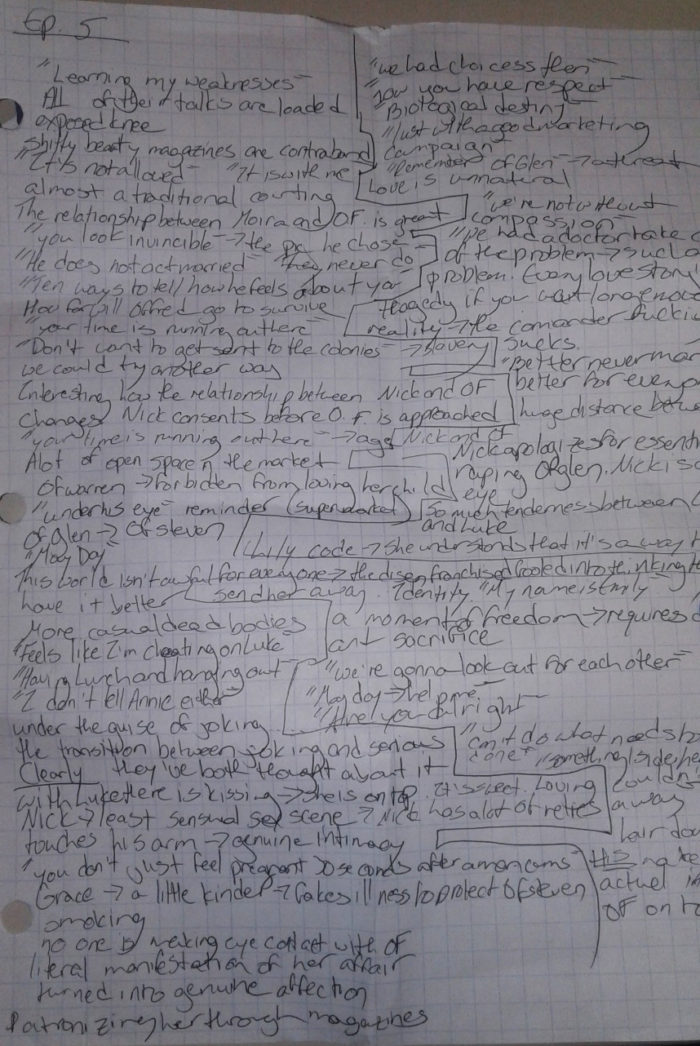 Ep. 5
"Learning my weaknesses"
All of their talks are loaded
exposed knee
Shitty beauty magazines are contraband
"It is not allowed" "It is with me"
almost a traditional courting
The relationship between Moira and OF. is great
"you look invincible" → the pic he chose
"He does not act married" "they never do"
"Ten ways to tell how he feels about you"
How far will offred go to survive
"your time is running out here"
"Don't want to get sent to the colonies" → slavery
we could try another way
Interesting how the relationship between Nick and OF
changes Nick consents before O.F. is approached
"your time is running out here" → age
A lot of open space in the market
Ofwarren → forbidden from loving her child
"under his eye" reminder (supermarket)
Of glen → Of steven
"May Day"
This world isn't awful for everyone → the disenfranchised fooled into thinking they
have it better
More casual dead bodies
"feels like I'm cheating on Luke"
"Having lunch and hanging out"
"I don't tell Annie either"
under the guise of joking
the transition between joking and serious
Clearly they've both thought about it
with Luke there is kissing → she is on top
Nick → least sensual sex scene → Nick has a lot of
touches his arm → genuine intimacy
"you don't just feel pregnant 30 seconds after a man cums"
Grace → a little kinder → fakes illness to protect Ofsteven
smoking
no one is making eye contact with of
literal manifestation of her affair
turned into genuine affection
Patronizing her through magazines
"we had choices then"
"now you have respect"
"Biological destiny"
"Just with a good marketing
campaign"
"Remember" Of Glen → a threat
Love is unnatural
"we're not without
compassion"
"we had a doctor take c
of the problem → such a
problem. Every love story
tragedy if you wait long enou
reality → the comander fucki
sucks.
"Better never mean
better for everyo
huge distance betw
Nick and OF
Nick apologizes for essenti
raping Ofglen. Nick is
eye
so much tenderness between
and Luke
Chilly code → she understands that it's a way t
send her away. Identify. "My name is Emily"
a moment of freedom → requires
sacrifice
"We're gonna look out for each other"
"May day → help me"
"Are you alright"
"can't do what needs to
done" "something inside her
It is sweet. Loving couldn't
away
hair dow
His nake
actual in
OF on to